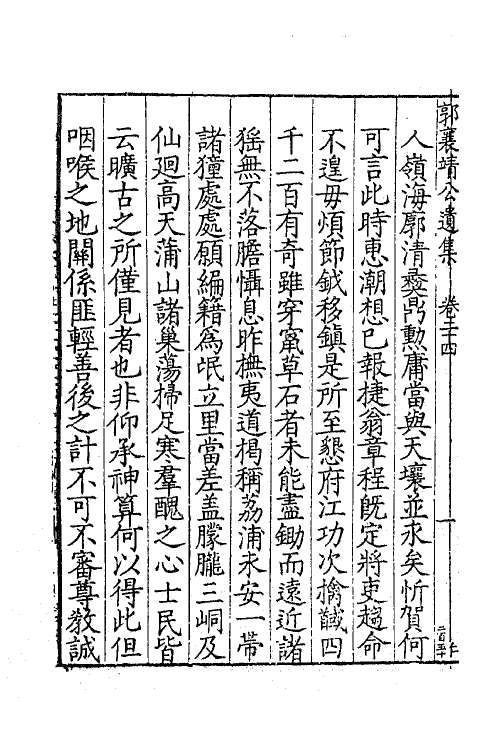 郭襄靖公遺集 卷二十四 一
人嶺海廓清彝鼎勲庸當與天壤並永矣忻賀何
可言此時惠潮想已報捷翁章程旣定將吏趨命
不遑毋煩節鉞移鎮是所至懇府江功次擒馘四
千二百有奇雖穿窜草石者未能盡鋤而遠近諸
猺無不落膽懾息昨撫夷道揭稱荔浦永安一帶
諸獞處處願編籍爲氓立里當差盖朦朧三峒及
仙廻高天蒲山諸巢蕩掃足寒羣醜之心士民皆
云曠古之所僅見者也非仰承神算何以得此但
咽喉之地關係匪輕善後之計不可不審尊教誠